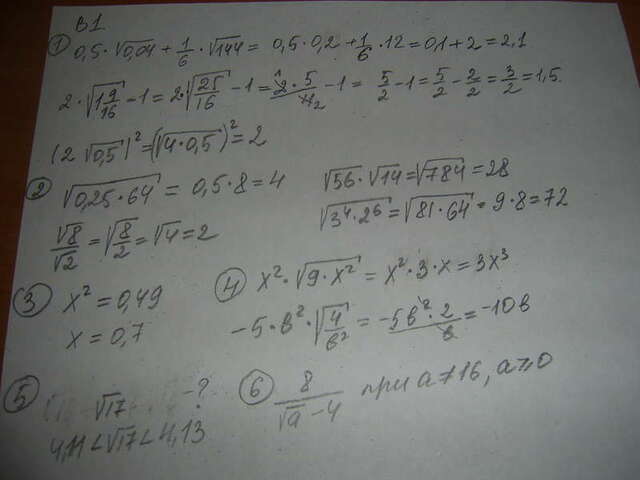 В1.
① 0,5·√0,04 + 1/6·√144 = 0,5·0,2 + 1/6·12 = 0,1 + 2 = 2,1
2·√1 9/16 − 1 = 2·√25/16 − 1 = 2·5/4₂ − 1 = 5/2 − 1 = 5/2 − 2/2 = 3/2 = 1,5.
(2√0,5)² = (√4·0,5)² = 2
② √0,25·64 = 0,5·8 = 4
√56·√14 = √784 = 28
√8/√2 = √8/2 = √4 = 2
√3⁴·2⁶ = √81·64 = 9·8 = 72
③ x² = 0,49
x = 0,7
④ x²·√9·x² = x²·3·x = 3x³
−5·в²·√4/в² = −5в²·2/в = −10в
⑤ √17 − ?
4,11 < √17 < 4,13
⑥ 8/√a − 4 при a ≠ 16, a ≥ 0